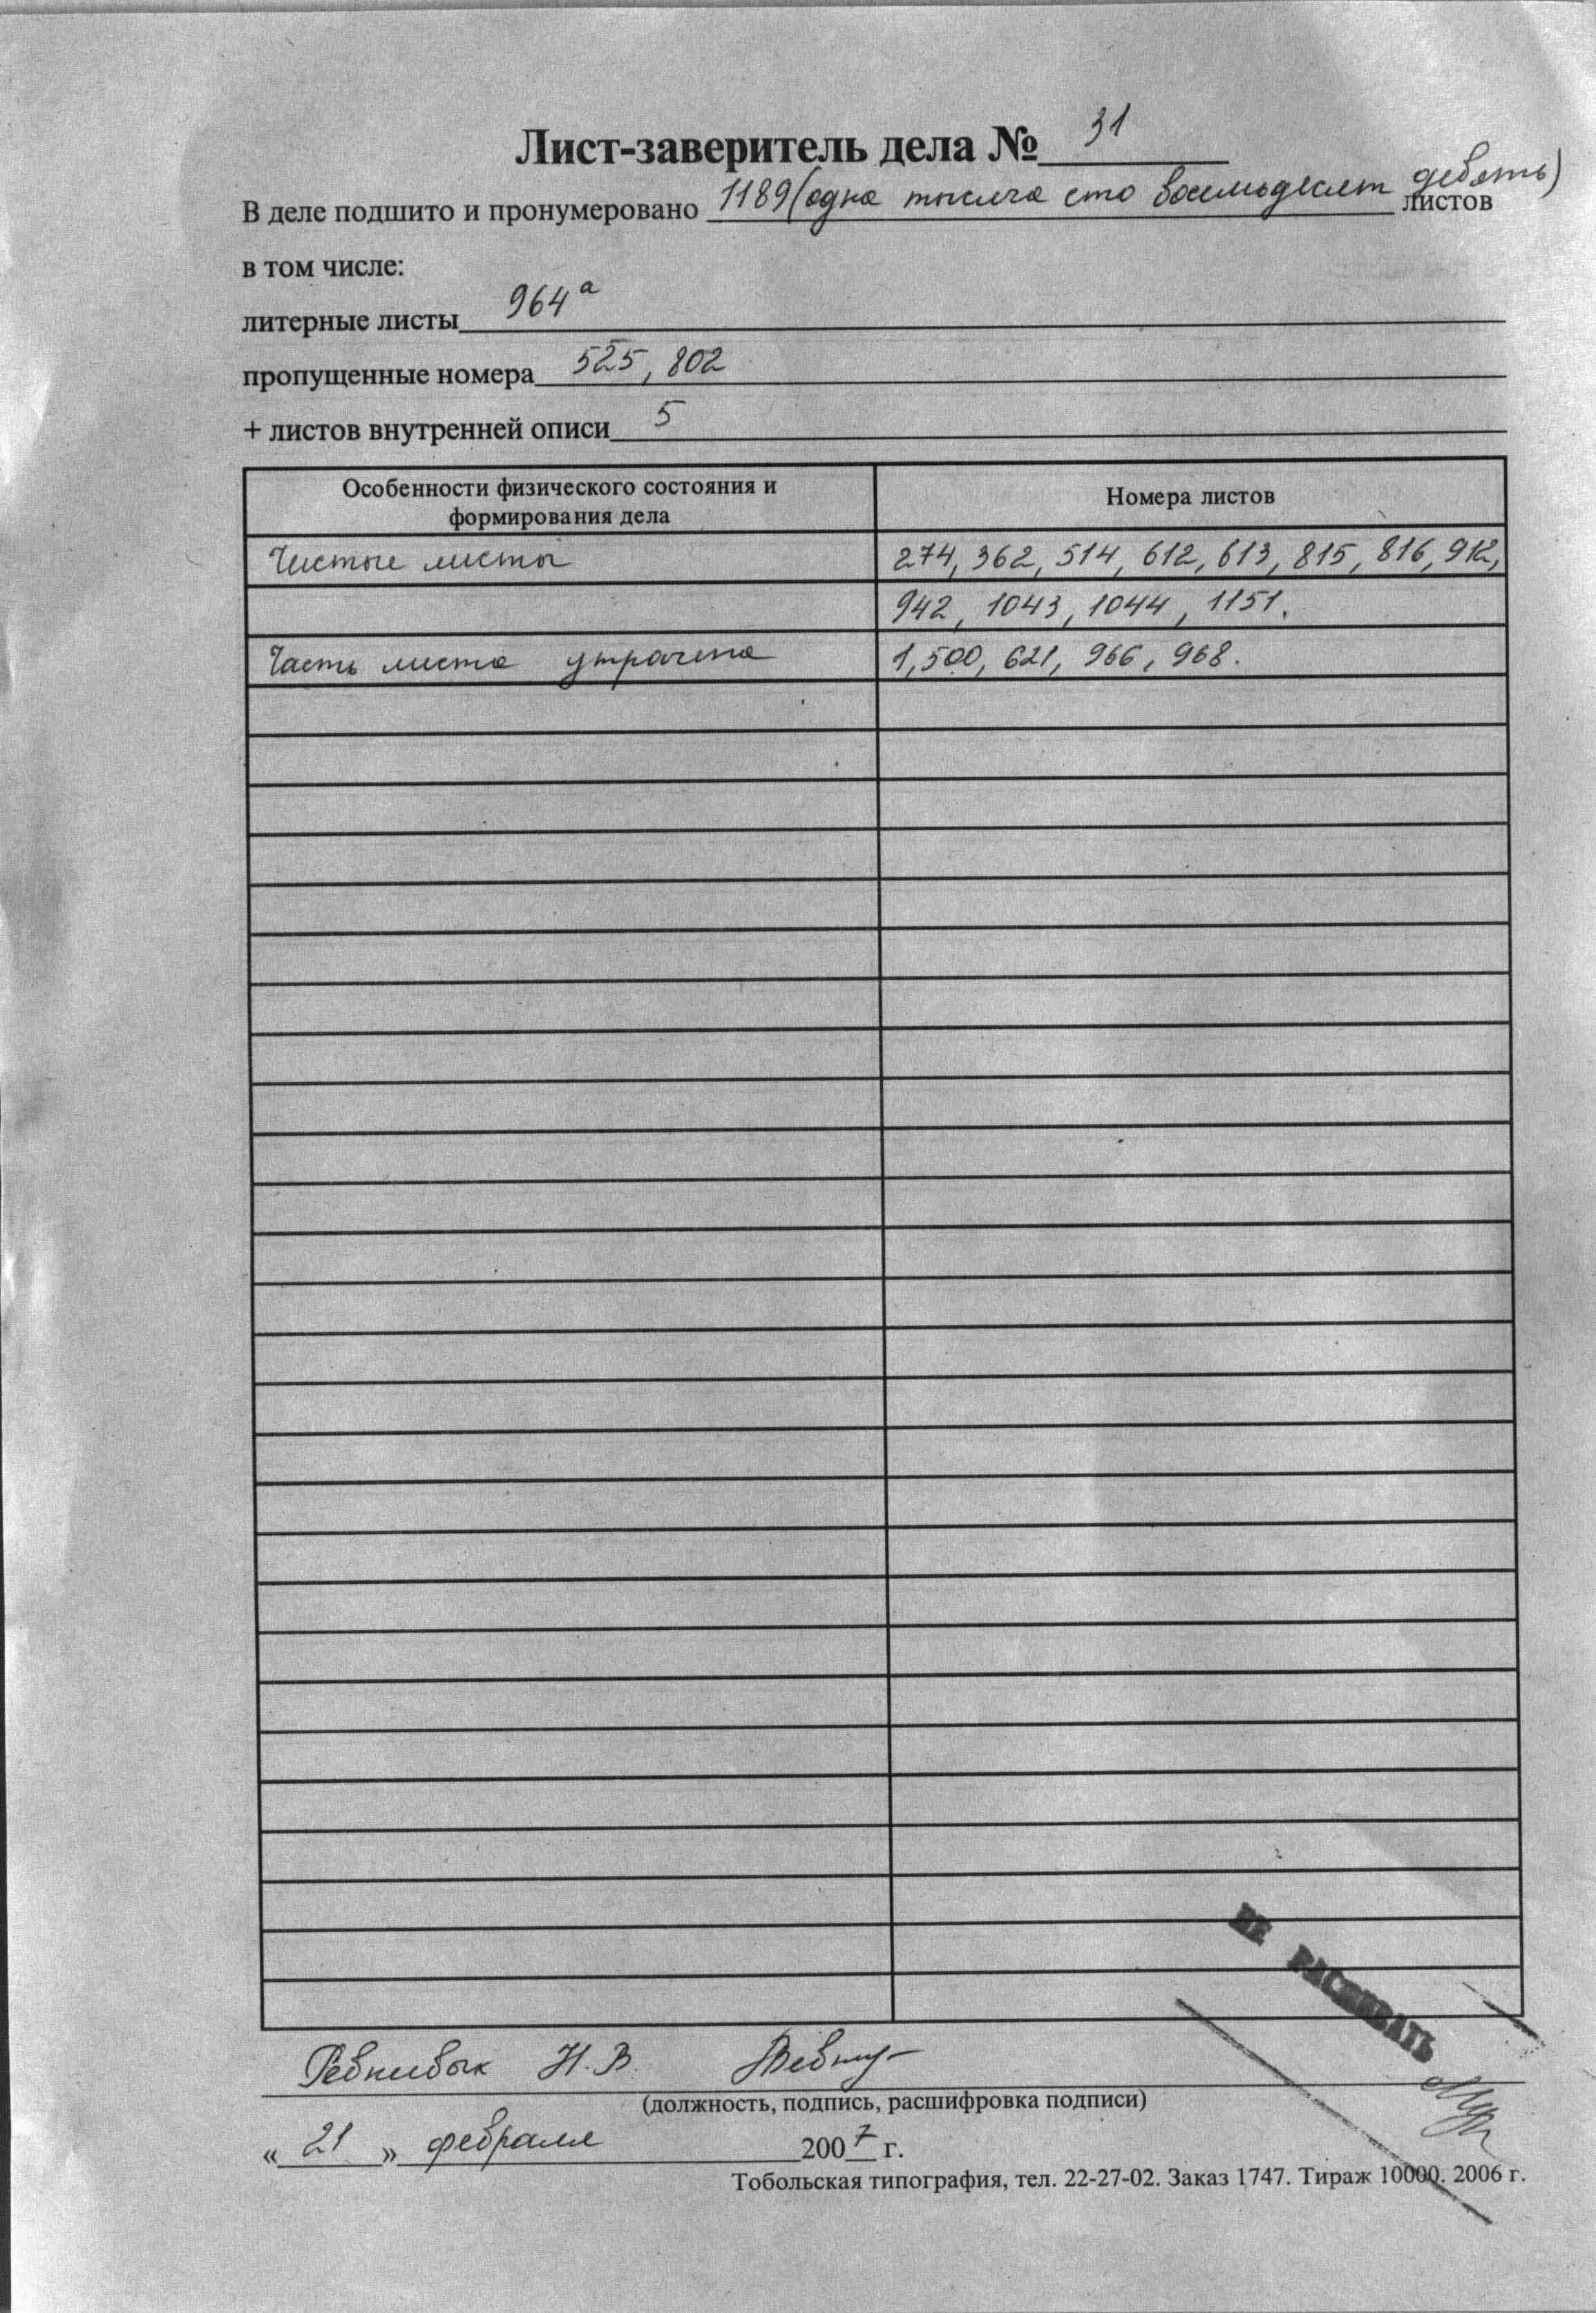 Лист-заверитель дела № 31
В деле подшито и пронумеровано 1189 (одна тысяча сто восемьдесят девять) листов
в том числе:
литерные листы 964а
пропущенные номера 525, 802
+ листов внутренней описи 5
Особенности физического состояния и формирования дела Номера листов
Чистые листы 274, 362, 514, 612, 613, 815, 816, 912,
942, 1043, 1044, 1151.
Часть листа утрачена 1, 500, 621, 966, 968.
НЕ РАСШИВАТЬ
Н.В.
(должность, подпись, расшифровка подписи)
« 21 » февраля 2007 г.
Тобольская типография, тел. 22-27-02. Заказ 1747. Тираж 10000. 2006 г.